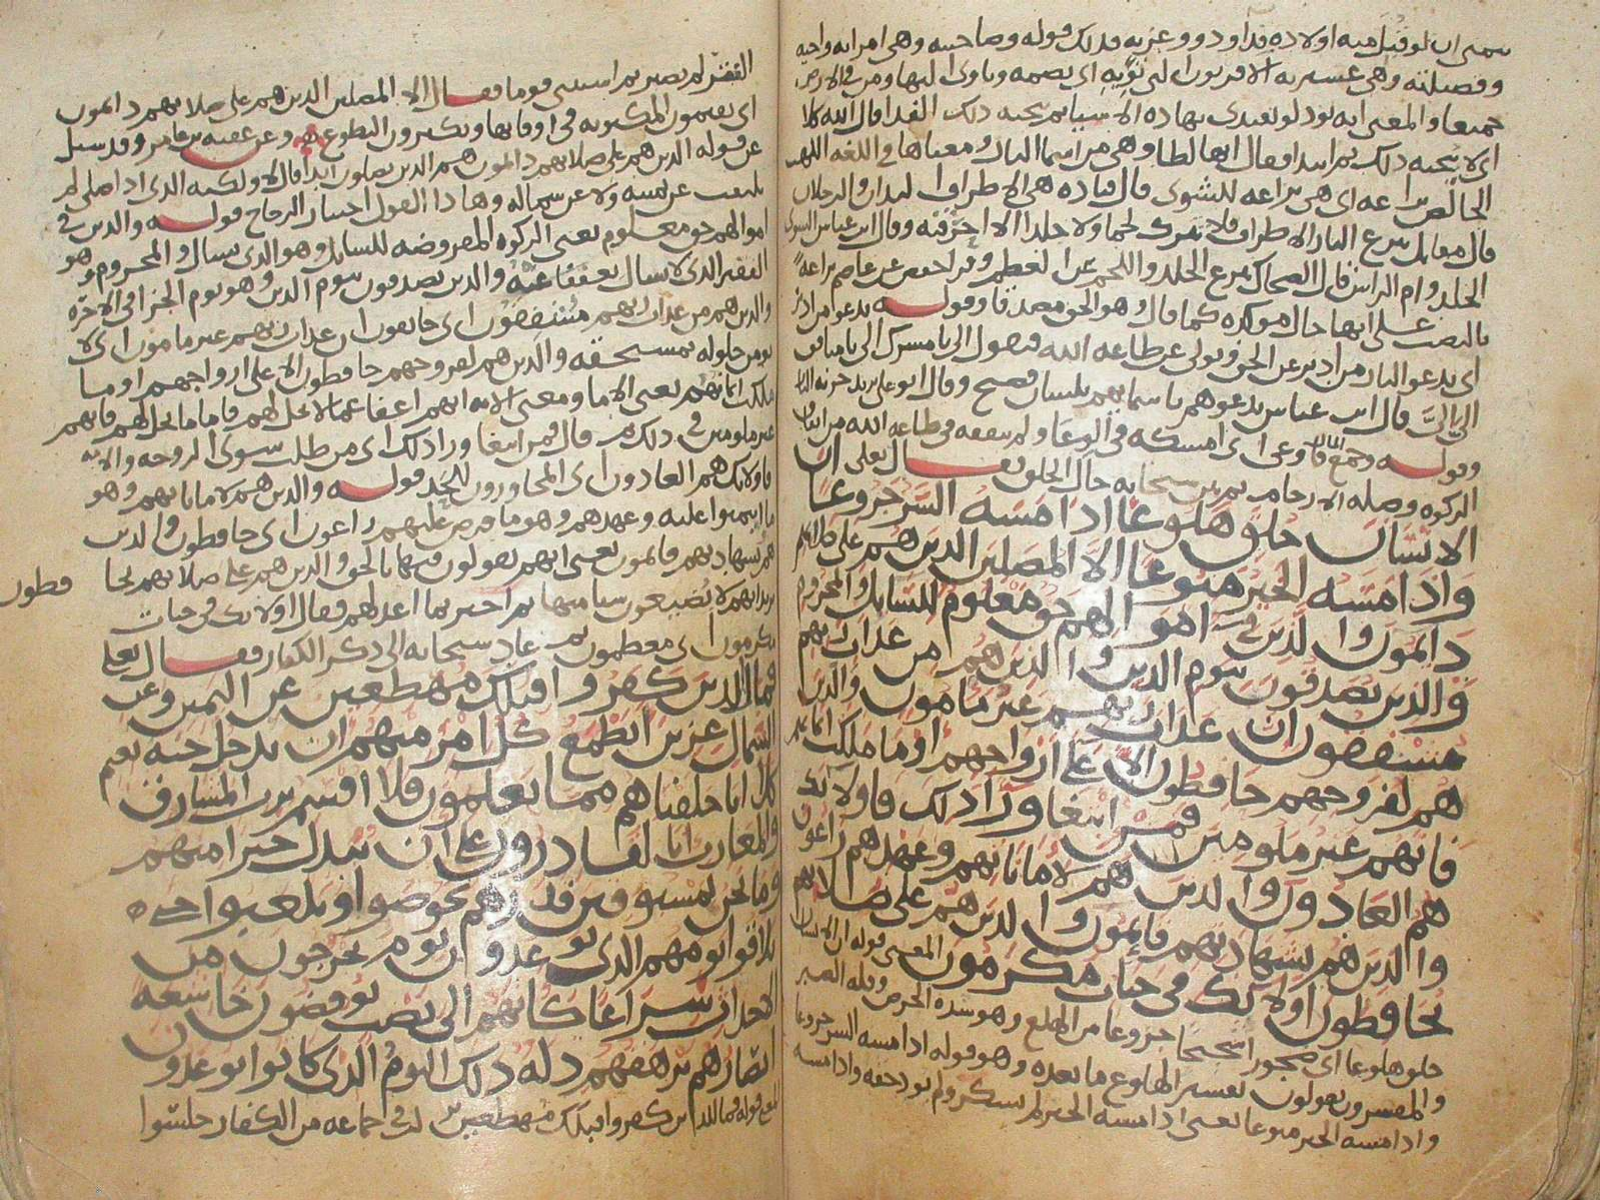 يتمنى ان لو قُبِلَ منه اولاده قداود وو عزيه فذلك قوله وصاحبته وهي امراته واخيه
وفصيلته وهي عشيرته الاقربون التي تؤويه اي تضمه وياوى اليها ومن في الارض
جميعا والمعنى انه يود لو يفتدى بهاذه الاشيا ثم ينجيه ذلك الفدا قال الله كلا
اي لا ينجيه ذلك ثم ابتدا فقال انها لظا وهي من اسما النار ومعناها في اللغه اللهب
الخالص نزاعه اي هي نزاعه للشوى قال قتاده هي الاطراف اليدان والرجلان
قال مقاتل تنزع النار الاطراف فلا تترك لحما ولا جلدا الا احرقته وقال ابن عباس الشوى
الجلد وام الراس قال الضحاك تنزع الجلد واللحم عن العظم وقرا حفص عن عاصم نزاعة
بالنصب على انها حال موكده كما قال وهو الحق مصدقا وقوله تدعوا من ادبر
اي تدعو النار من ادبر عن الحق وتولى عن طاعه الله فتقول الي يا مشرك الي يا منافق
الي الي قال ابن عباس تدعوهم باسمايهم بلسان فصيح
وقوله وجمع المال فاوعى اي امسكه في الوعا ولم ينفقه في طاعه الله من ايتا
الزكوه وصله الارحام ثم بين سبحانه حال الخلق فقال تعلى ان
الانسان خلق هلوعا اذا مسه الشر جزوعا
واذا مسه الخير منوعا الا المصلين الذين هم على صلاتهم
دايمون والذين في اموالهم حق معلوم للسايل والمحروم
والذين يصدقون بيوم الدين والذين هم من عذاب ربهم
مشفقون ان عذاب ربهم غير مامون والذين
هم لفروجهم حافظون الا على ازواجهم او ما ملكت ايمانهم
فانهم غير ملومين فمن ابتغا ورا ذلك فاولايك
هم العادون والذين هم لاماناتهم وعهدهم راعون
والذين هم بشهادتهم قايمون والذين هم على صلاتهم
يحافظون اولايك في جنات مكرمون المعنى قوله ان الانسان
خلق هلوعا اي ضجورا شحيحا جزوعا من الهلع وهو شده الحرص وقله الصبر
والمفسرون يقولون تفسير الهلوع ما بعده وهو قوله اذا مسه الشر جزوعا
واذا مسه الخير منوعا يعنى اذا مسه الخير لم يشكر ولم يود حقه واذا مسه
الفقر لم يصبر ثم استثنى قوما فقال الا المصلين الذين هم على صلاتهم دايمون
اي يقيمون المكتوبه في اوقاتها ويكثرون التطوع وعن عقبه بن عامر وقد سيل
عن قوله الذين هم على صلاتهم دايمون هم الذين يصلون ابدا قال لا ولكنه الذي اذا صلى لم
يلتفت عن يمينه ولا عن شماله وهاذا القول اختيار الزجاج قوله والذين في
اموالهم حق معلوم يعنى الزكوه المفروضه للسايل وهو الذي يسال والمحروم وهو
الفقير الذي لا يسال تعففا والذين يصدقون بيوم الدين وهو يوم الجزا في الاخرة
والذين هم من عذاب ربهم مشفقون اي خايفون ان عذاب ربهم غير مامون اي لا
يومن حلوله بمستحقه والذين هم لفروجهم حافظون الا على ازواجهم او ما
ملكت ايمانهم يعنى الاما ومعنى الايه انهم اعفا عما لا يحل لهم فاما ما يحل لهم فانهم
غير ملومين في ذلك ثم قال فمن ابتغا ورا ذلك اي من طلب سوى الزوجه والامه
فاولايك هم العادون اي المجاوزون الحد قوله والذين هم لاماناتهم وهو
ما ايتمنوا عليه وعهدهم وهو ما فرض عليهم راعون اي حافظون والذين
هم بشهادتهم قايمون يعنى انهم يقولون فيها بالحق والذين هم على صلاتهم يحا فظون
يريد انهم لا يضيعون شيا منها ثم اخبر بما اعد لهم فقال اولايك في جنات
مكرمون اي معظمون ثم عاد سبحانه الى ذكر الكفار فقال تعلى
فمال الذين كفروا قبلك مهطعين عن اليمين وعن
الشمال عزين ايطمع كل امرء منهم ان يدخل جنه نعيم
كلا انا خلقناهم مما يعلمون فلا اقسم برب المشارق
والمغارب انا لقادرون على ان نبدل خيرا منهم
وما نحن بمسبوقين فذرهم يخوضوا ويلعبوا حتى
يلاقوا يومهم الذي يوعدون يوم يخرجون من
الاجداث سراعا كانهم الى نصب يوفضون خاشعه
ابصارهم ترهقهم ذله ذلك اليوم الذي كانوا يوعدون
المعنى قوله فمال الذين كفروا قبلك مهطعين جماعه من الكفار جلسوا